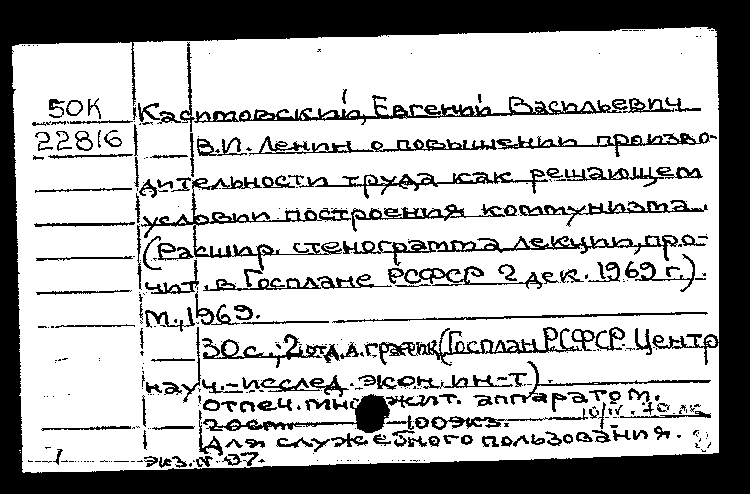 50К Касимовский, Евгений Васильевич
22816 В.И. Ленин о повышении произво-
дительности труда как решающем
условии построения коммунизма.
(Расшир. стенограмма лекции, про-
чит. в Госплане РСФСР 2 дек. 1969 г.).
М., 1969.
30 с.; 2 отд. л. график (Госплан РСФСР. Центр
науч.-исслед. экон. ин-т).
отпеч. множит. аппаратом.
20 см 100 экз. 10/IV.70
Для служебного пользования.
1 экз. № 97.